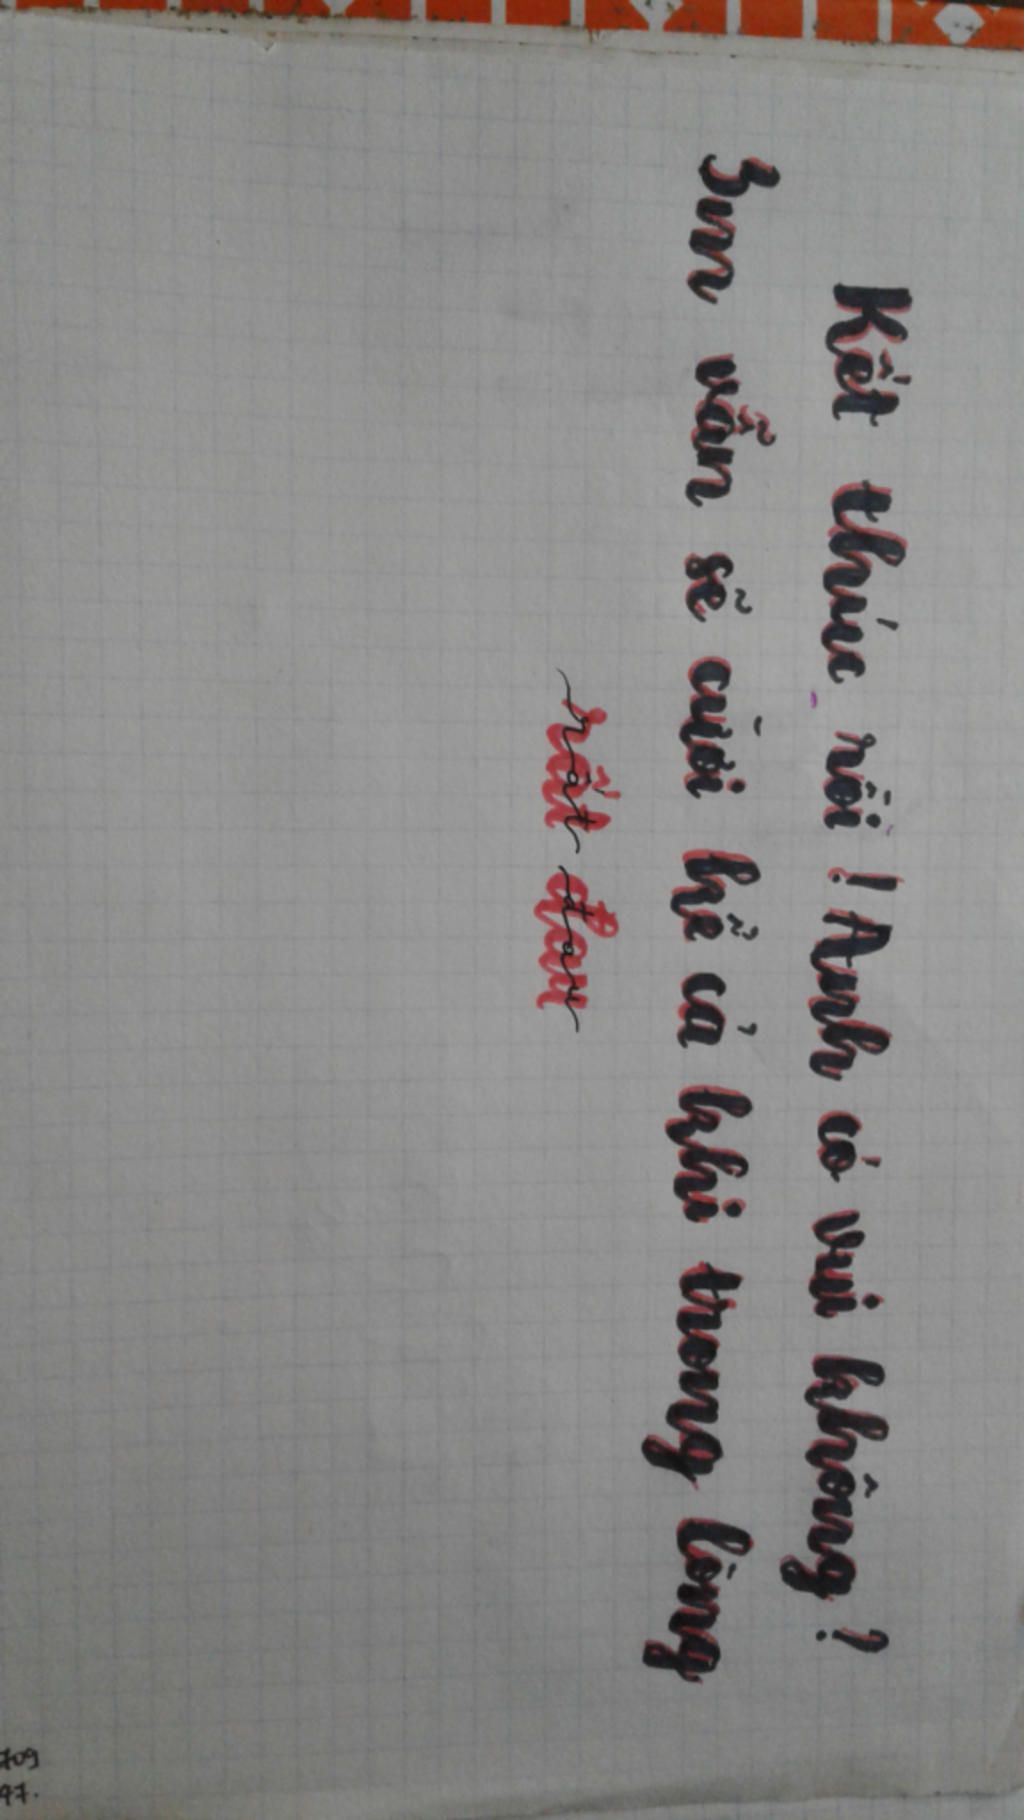 Kết thúc rồi ! Anh có vui không ?
Em vẫn sẽ cười kể cả khi trong lòng
rất đau